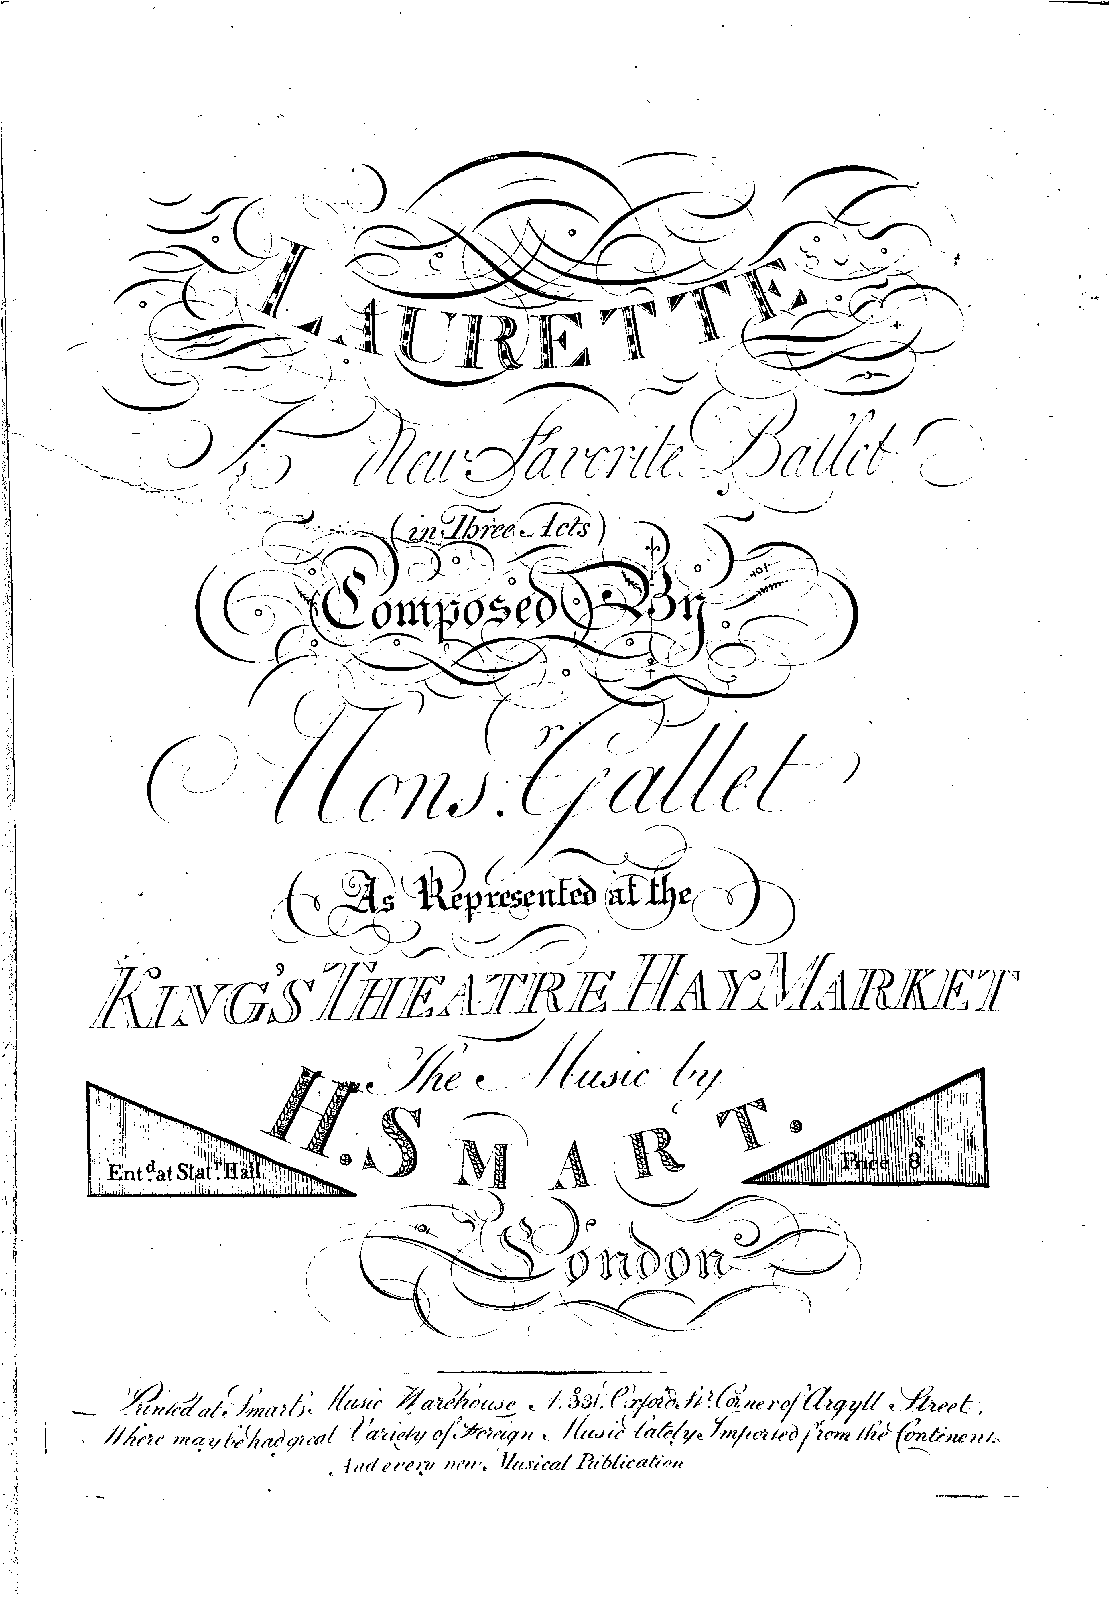 LAURETTE
A New Favorite Ballet
(in Three Acts)
Composed By
Mons.r Gallet
As Represented at the
KING'S THEATRE HAY MARKET
The Music by
H. SMART.
Ent.d at Stat.rs Hall
Price 8s
London
Printed at Smart's Music Warehouse N. 331. Oxford St. Corner of Argyll Street,
Where may be had great Variety of Foreign Music lately Imported from the Continent
And every new Musical Publication